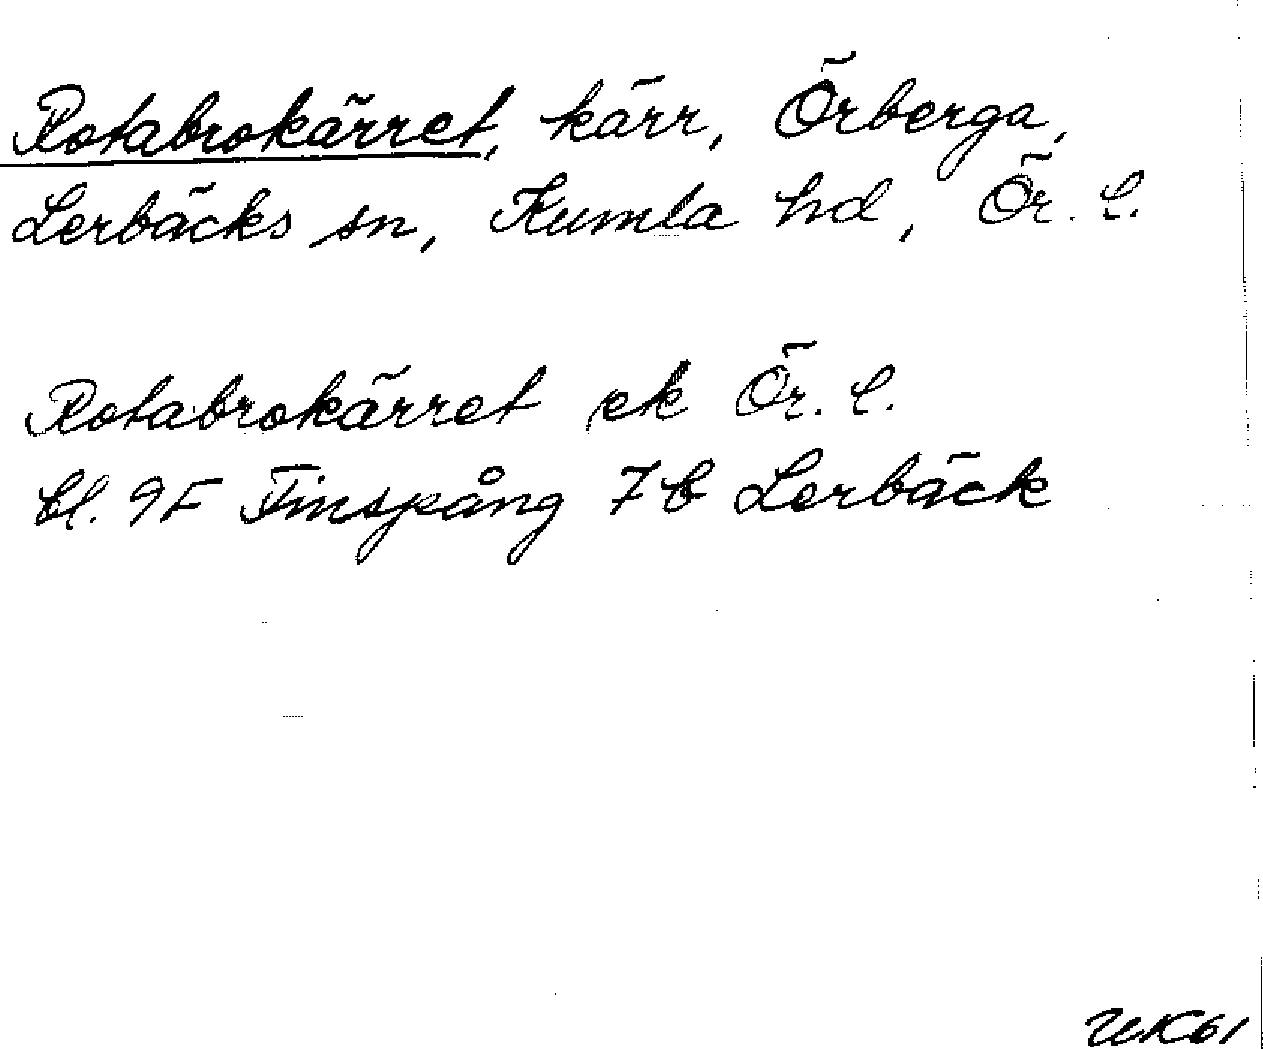 Rotabrokärret, kärr, Örberga,
Lerbäcks sn, Kumla hd, Ör. l.
Rotabrokärret ek Ör. l.
bl. 9F Finspång 7b Lerbäck